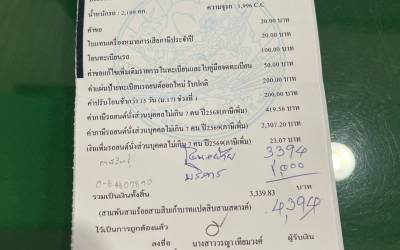 น้ำหนักรถ : 2,106 กก. ความจุรถ : 1,996 C.C
คำขอ 20.00 บาท
ใบแทนเครื่องหมายการเสียภาษีประจำปี 20.00 บาท
โอนทะเบียนรถ 100.00 บาท
ค่าขอแก้ไขเพิ่มเติมรายการในทะเบียนและใบคู่มือจดทะเบียน 50.00 บาท
ค่าแผ่นป้ายทะเบียนรถยนต์ออกใหม่ รับปกติ 200.00 บาท
ค่าปรับโอนช้ากว่า 15 วัน (ม.17) ช่วงที่ 1 200.00 บาท
ค่าภาษีรถยนต์นั่งส่วนบุคคลไม่เกิน 7 คน ปี2568(ภาษีเพิ่ม) 419.56 บาท
ค่าภาษีรถยนต์นั่งส่วนบุคคลไม่เกิน 7 คน ปี2569(ภาษีเพิ่ม) 2,307.20 บาท
เงินเพิ่มรถยนต์นั่งส่วนบุคคลไม่เกิน 7 คน ปี2569(ภาษีเพิ่ม) 23.07 บาท
3394
บริการ 1,000
รวมเป็นเงินทั้งสิ้น 3,339.83 บาท
4,394
(สามพันสามร้อยสามสิบเก้าบาทแปดสิบสามสตางค์)
ไว้เป็นการถูกต้องแล้ว
ลงชื่อ นางสาววรญา เทียมวงศ์ ผู้รับเงิน